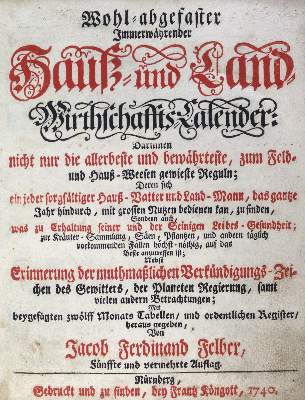 Wohl-abgefaßter
Immerwährender
Hauß- und Land-
Wirthschaffts-Calender:
Darinnen
nicht nur die allerbeste und bewährteste, zum Feld-
und Hauß-Wesen gewieste Reguln;
Deren sich
ein jeder sorgfältiger Hauß-Vatter und Land-Mann, das gantze
Jahr hindurch, mit grossen Nutzen bedienen kan, zu finden,
Sondern auch,
was zu Erhaltung seiner und der Seinigen Leibes-Gesundheit;
zur Kräuter-Sammlung, Säen, Pflantzen, und andern täglich
vorkommenden Fällen höchst-nöthig, auf das
Beste anzumerken ist;
Nebst
Erinnerung der muthmaßlichen Verkündigungs-Zei-
chen des Gewitters, der Planeten Regierung, samt
vielen andern Betrachtungen;
Mit
beygefügten zwölff Monats Tabellen/ und ordentlichen Register/
heraus gegeben,
Von
Jacob Ferdinand Felber,
Fünffte und vermehrte Auflag.
Nürnberg,
Gedruckt und zu finden, bey Frantz Köngott, 1740.